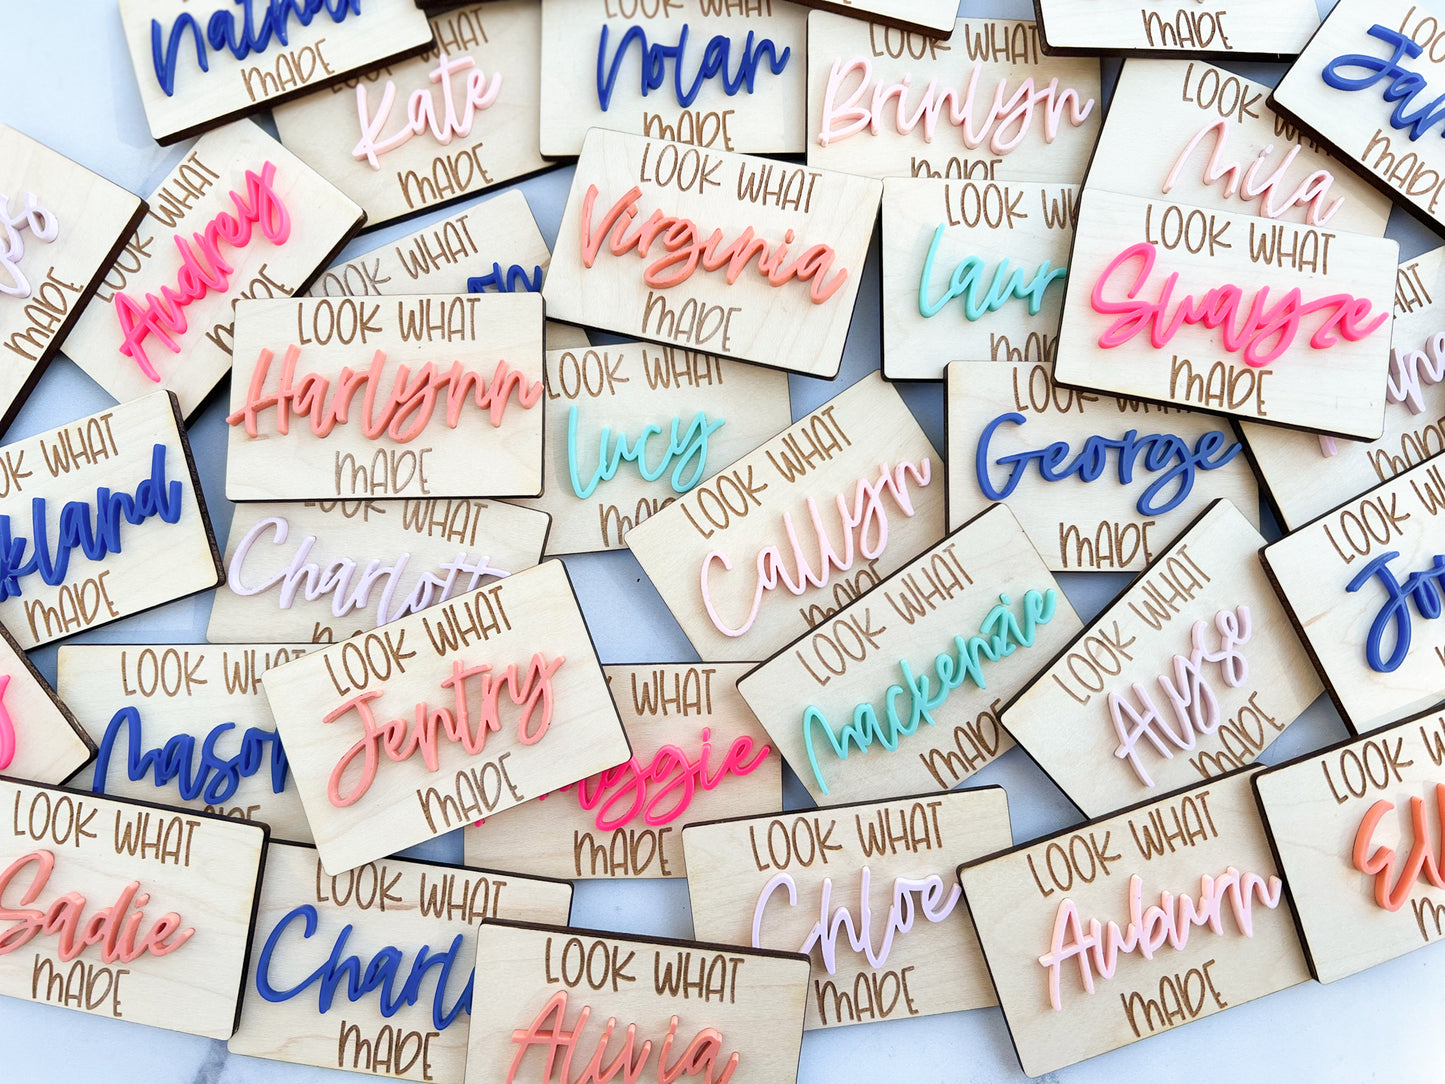 Nathan
MADE
LOOK WHAT
Kate
MADE
LOOK WHAT
Nolan
MADE
LOOK WHAT
Brinlyn
MADE
MADE
LOOK WHAT
Mila
MADE
LOOK WHAT
Audrey
MADE
LOOK WHAT
LOOK WHAT
Virginia
MADE
LOOK
MADE
LOOK WHAT
Swayze
MADE
LOOK WHAT
Harlynn
MADE
LOOK WHAT
Lucy
LOOK WHAT
Callyn
MADE
LOOK WHAT
George
MADE
WHAT
MADE
LOOK WHAT
MADE
LOOK WHAT
LOOK WHAT
Jentry
MADE
LOOK WHAT
Mackenzie
MADE
LOOK WHAT
Alyse
MADE
LOOK WHAT
MADE
LOOK
Mason
MADE
WHAT
MADE
LOOK WHAT
Sadie
MADE
LOOK WHAT
MADE
LOOK WHAT
Alivia
LOOK WHAT
Chloe
MADE
LOOK WHAT
Auburn
MADE
LOOK WHAT